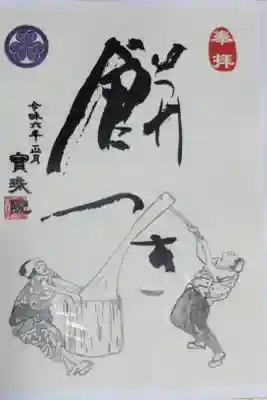 奉拝
餅
つき
令和六年正月
寳珠院